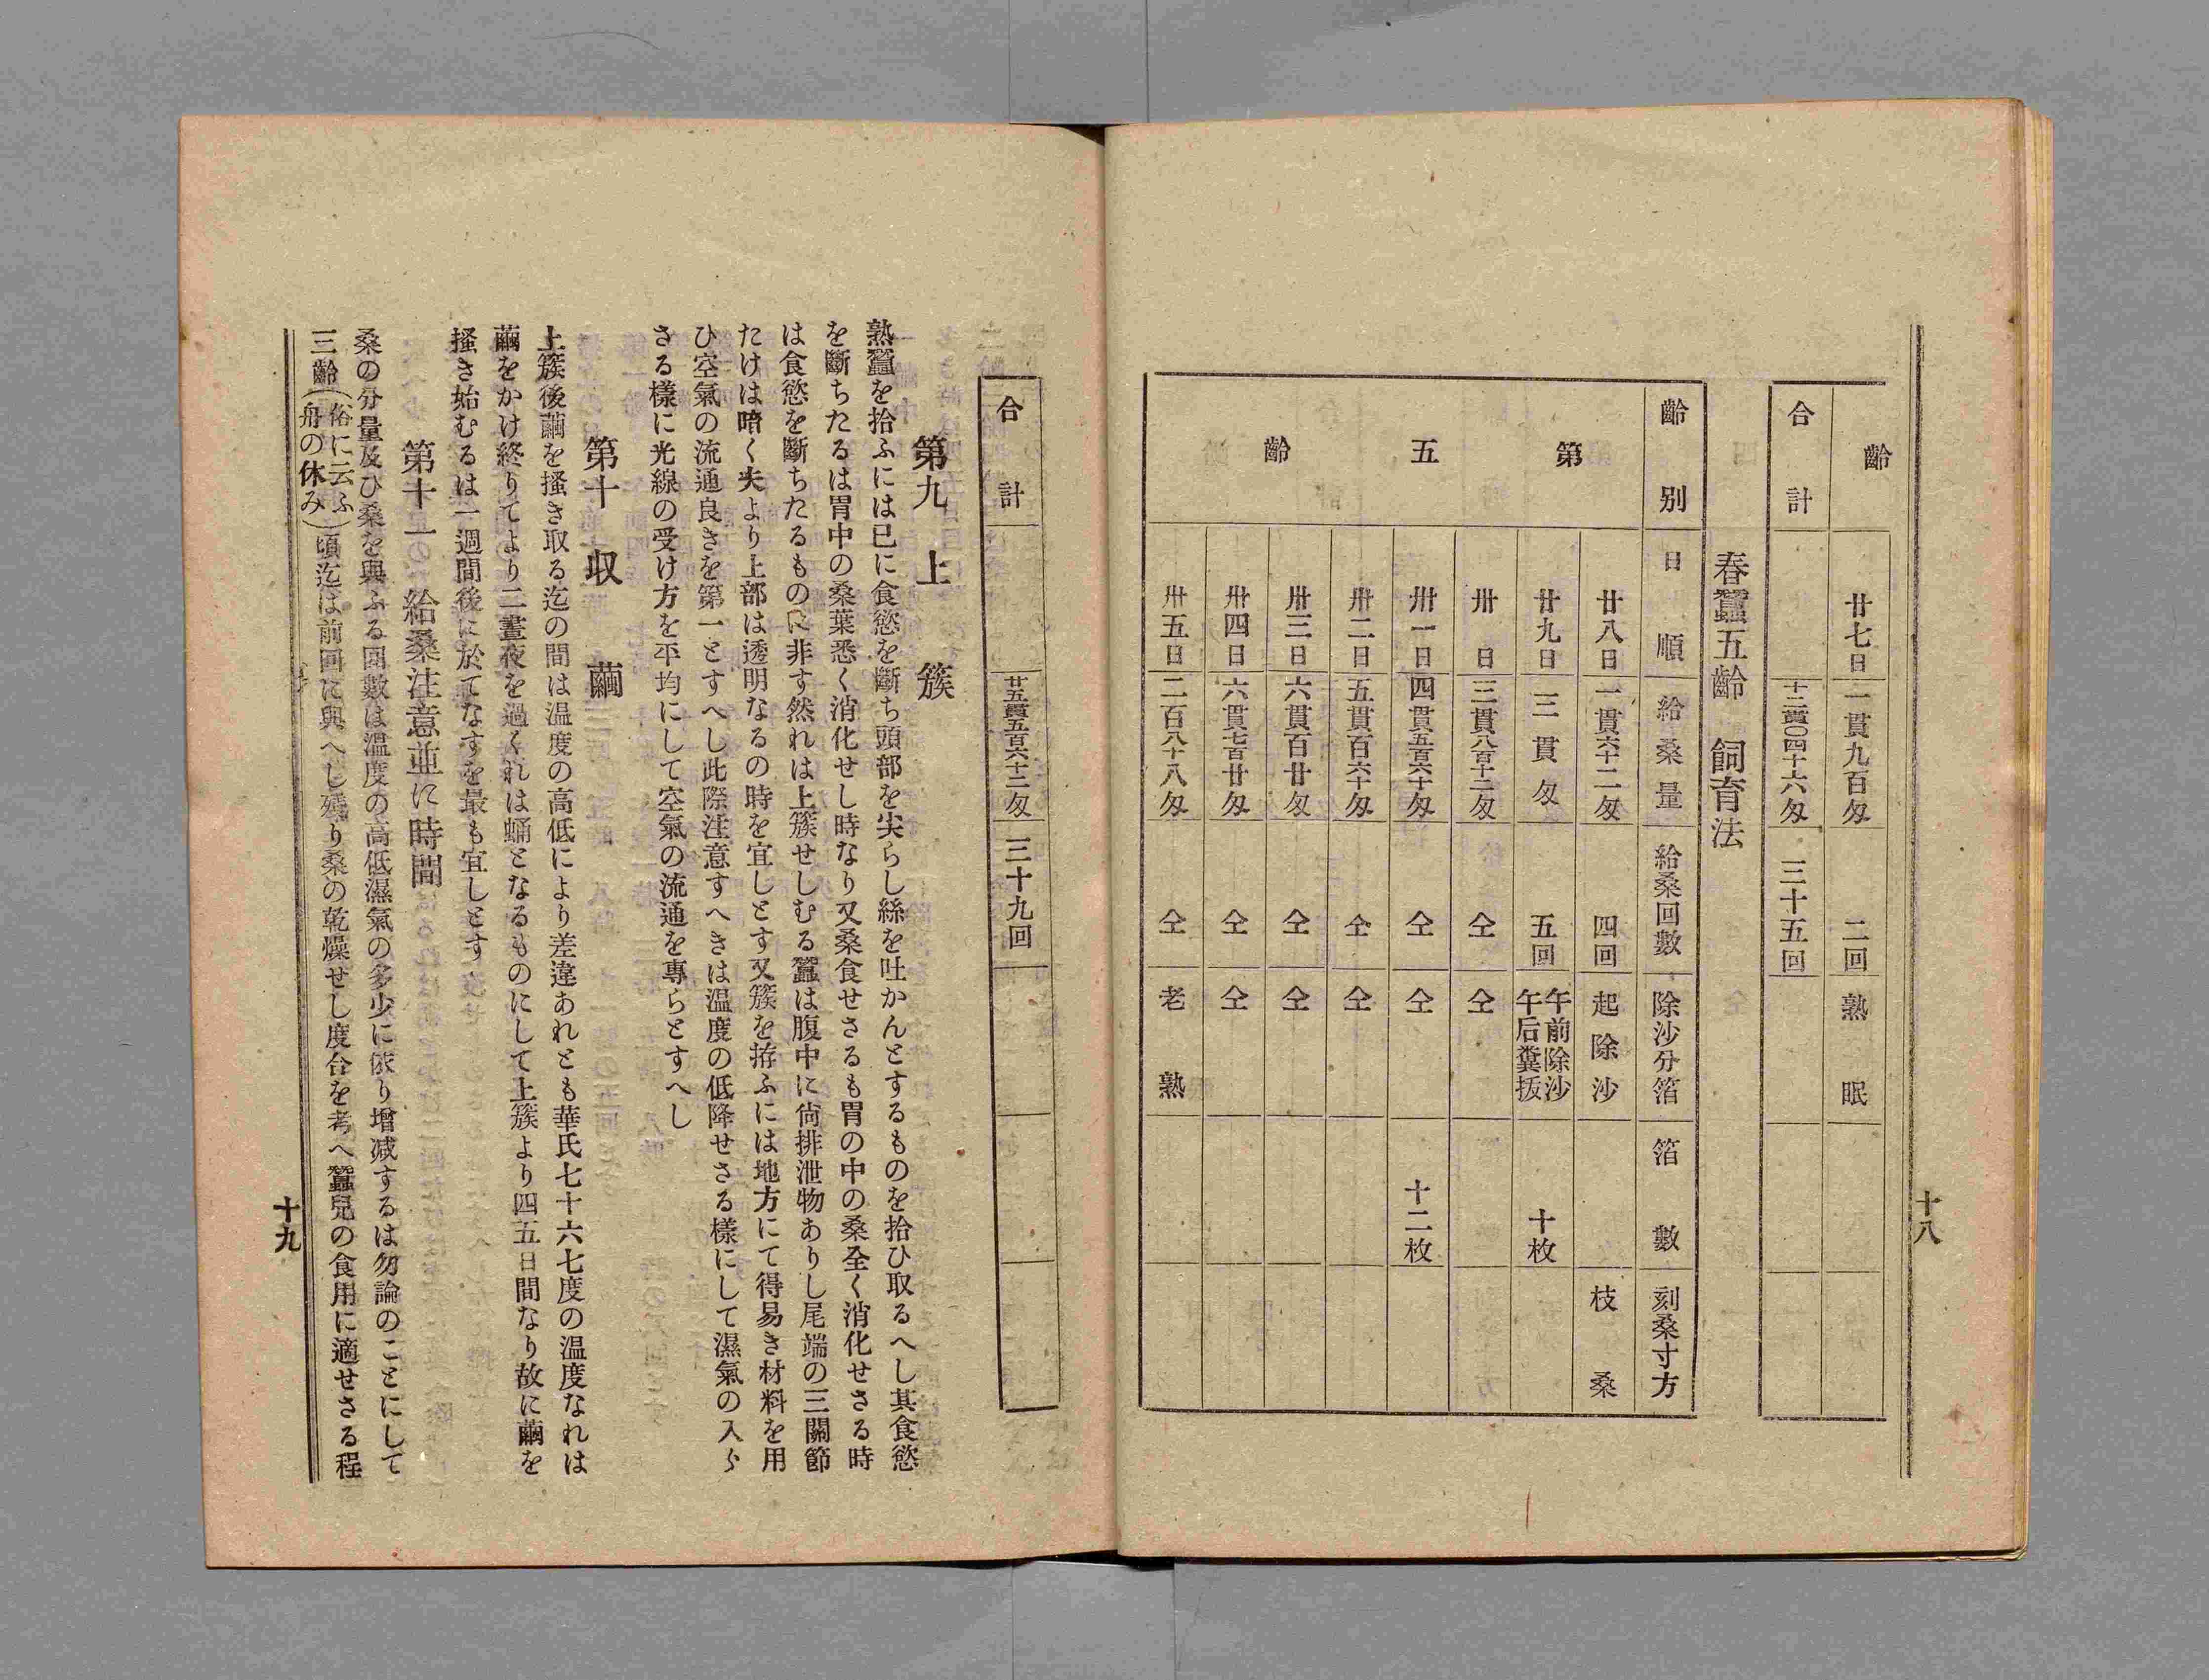 十八
齡
廿七日 一貫九百匁 二回 熟眠
合計 十二貫〇四十六匁 三十五回
春蠶五齡 飼育法
齡別 日順 給桑量 給桑回數 除沙分箔 箔數 刻桑寸方
第五齡
廿八日 一貫六十二匁 四回 起除沙 枝桑
廿九日 三貫匁 五回 午前除沙 午后糞抜 十枚
卅日 三貫八百十二匁 仝 仝
卅一日 四貫五百六十匁 仝 仝 十二枚
卅二日 五貫百六十匁 仝 仝
卅三日 六貫百廿匁 仝 仝
卅四日 六貫七百廿匁 仝 仝
卅五日 二百八十八匁 仝 老熟
合計 廿五貫五百六十二匁 三十九回
第九 上簇
熟蠶を拾ふには已に食慾を斷ち頭部を尖らし絲を吐かんとするものを拾ひ取るへし其食慾
を斷ちたるは胃中の桑葉悉く消化せし時なり又桑食せさるも胃の中の桑全く消化せさる時
は食慾を斷ちたるものに非す然れは上簇せしむる蠶は腹中に尙排泄物ありし尾端の三關節
たけは暗く夫より上部は透明なるの時を宜しとす又簇を拵ふには地方にて得易き材料を用
ひ空氣の流通良きを第一とすへし此際注意すへきは溫度の低降せさる樣にして濕氣の入ら
さる樣に光線の受け方を平均にして空氣の流通を專らとすへし
第十 収繭
上簇後繭を搔き取る迄の間は溫度の高低により差違あれとも華氏七十六七度の溫度なれは
繭をかけ終りてより二晝夜を過くれは蛹となるものにして上簇より四五日間なり故に繭を
搔き始むるは一週間後に於てなすを最も宜しとす
第十一 給桑注意並に時間
桑の分量及ひ桑を與ふる回數は溫度の高低濕氣の多少に依り增減するは勿論のことにして
三齡(俗に云ふ舟の休み)頃迄は前回に與へし殘り桑の乾燥せし度合を考へ蠶兒の食用に適せさる程
十九